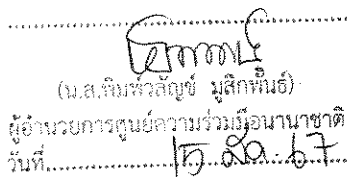 (น.ส.พิมพ์วลัญช์ มูสิกพันธ์)
ผู้อำนวยการศูนย์ความร่วมมือนานาชาติ
วันที่ 15 ส.ค. 67